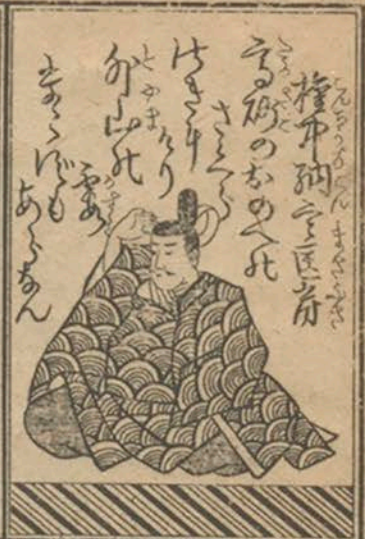 權中納言匡房
高砂のおのへの
さくら
さきに
けり
外山の
霞
たゝずも
あらなん